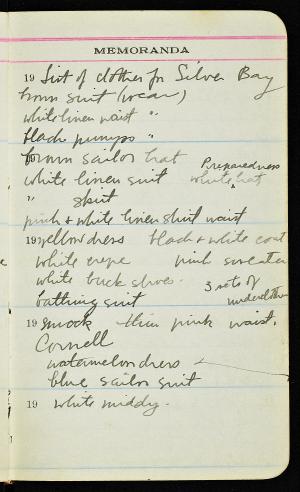 MEMORANDA
19 List of clothes for Silver Bay
brown suit (wear)
white linen waist "
black pumps "
brown sailor hat
Preparedness
white linen suit white hat
" skirt
pink & white linen shirt waist
19 yellow dress black & white coat
white crepe pink sweater
white buck shoes.
3 sets of
bathing suit underclothes
19 smock thin pink waist.
Cornell
watermelon dress
blue sailor suit
19 white middy.